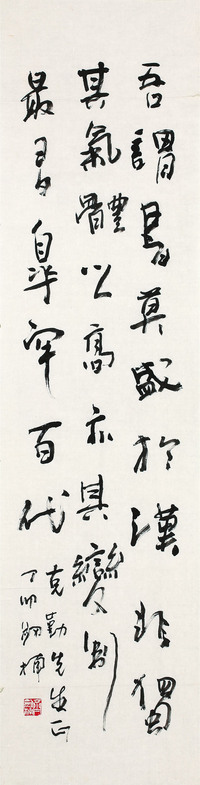 吾謂書莫盛於漢非獨
其氣體之高亦其變制
最多皋牢百代
克勤先生正
丁卯